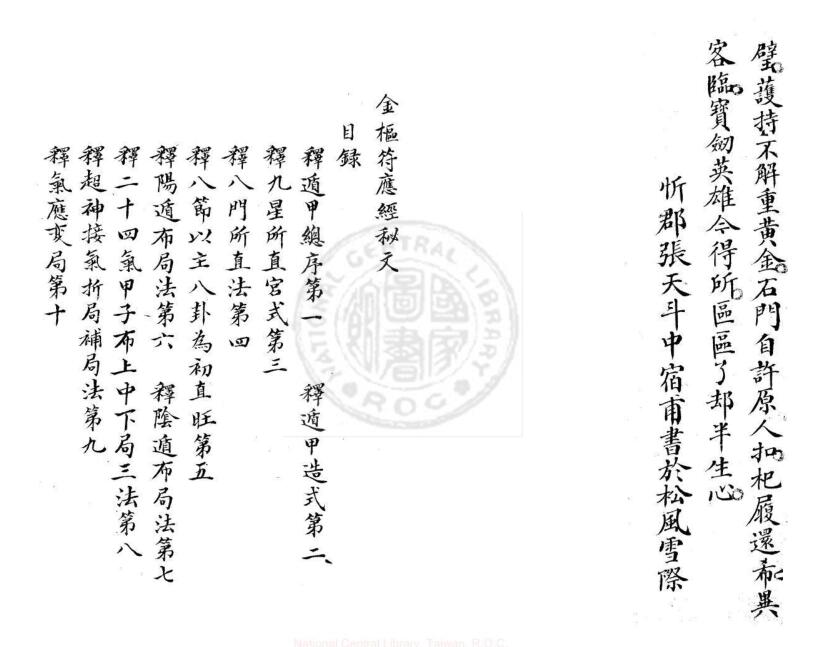 璧護持不解重黃金石門自許原人扣杞履還希異
客臨寶劒英雄今得所區區了却半生心
忻郡張天斗中宿甫書於松風雪際
金樞符應經秘文
目録
釋遁甲總序第一 釋遁甲造式第二
釋九星所直宮式第三
釋八門所直法第四
釋八節以主八卦為初直旺第五
釋陽遁布局法第六 釋陰遁布局法第七
釋二十四氣甲子布上中下局三法第八
釋超神接氣折局補局法第九
釋氣應変局第十
NATIONAL CENTRAL LIBRARY
R.O.C
國家圖書館
National Central Library, Taiwan, R.O.C.